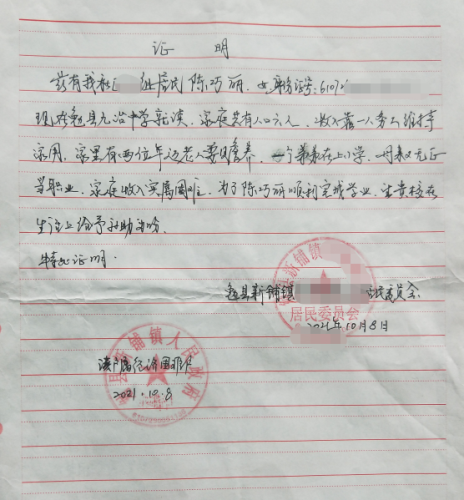 证 明
兹有我社 组居民陈巧丽,女,身份证号:6107
现在勉县九冶中学就读,家庭共有人口六人,收入靠一人务工维持
家用,家里有两位年迈老人要赡养,一个弟弟在上小学,母亲无正
当职业,家庭收入实属困难,为了陈巧丽顺利完成学业,望贵校在
生活上给予补助为盼.
特此证明.
勉县新铺镇 居民委员会
居民委员会
2021年10月8日
该户属经济困难户
2021.10.8
新铺镇人民政府